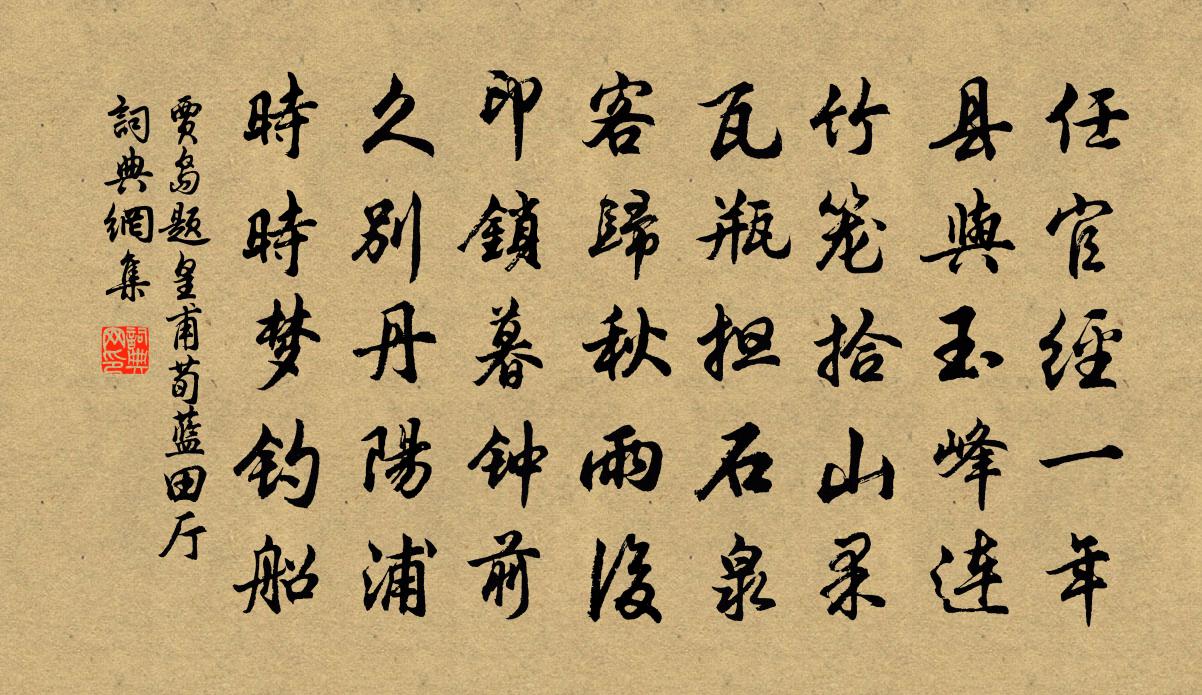 任官經一年
县與玉峰連
竹笼拾山果
瓦瓶担石泉
客歸秋雨後
印鎖暮钟前
久別丹陽浦
時時梦钓船
賈島题皇甫荀藍田厅
詞典網集
詞典網印